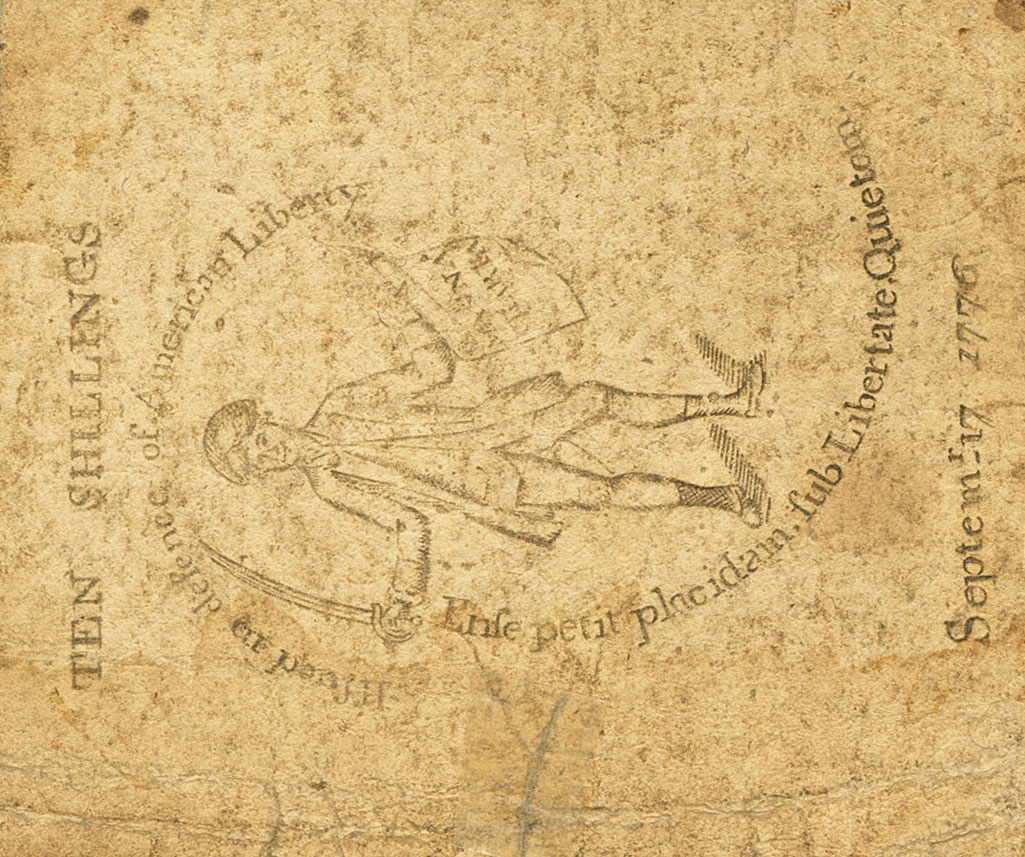 TEN SHILLINGS
Iſsued in defence of American Liberty
Enſe petit placidam, ſub Libertate Quietem
MAGNA
CHARTA
Septem.r 17 1776